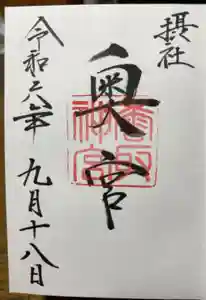 摂社
奥宮
香取
神宮
令和年
九月十八日